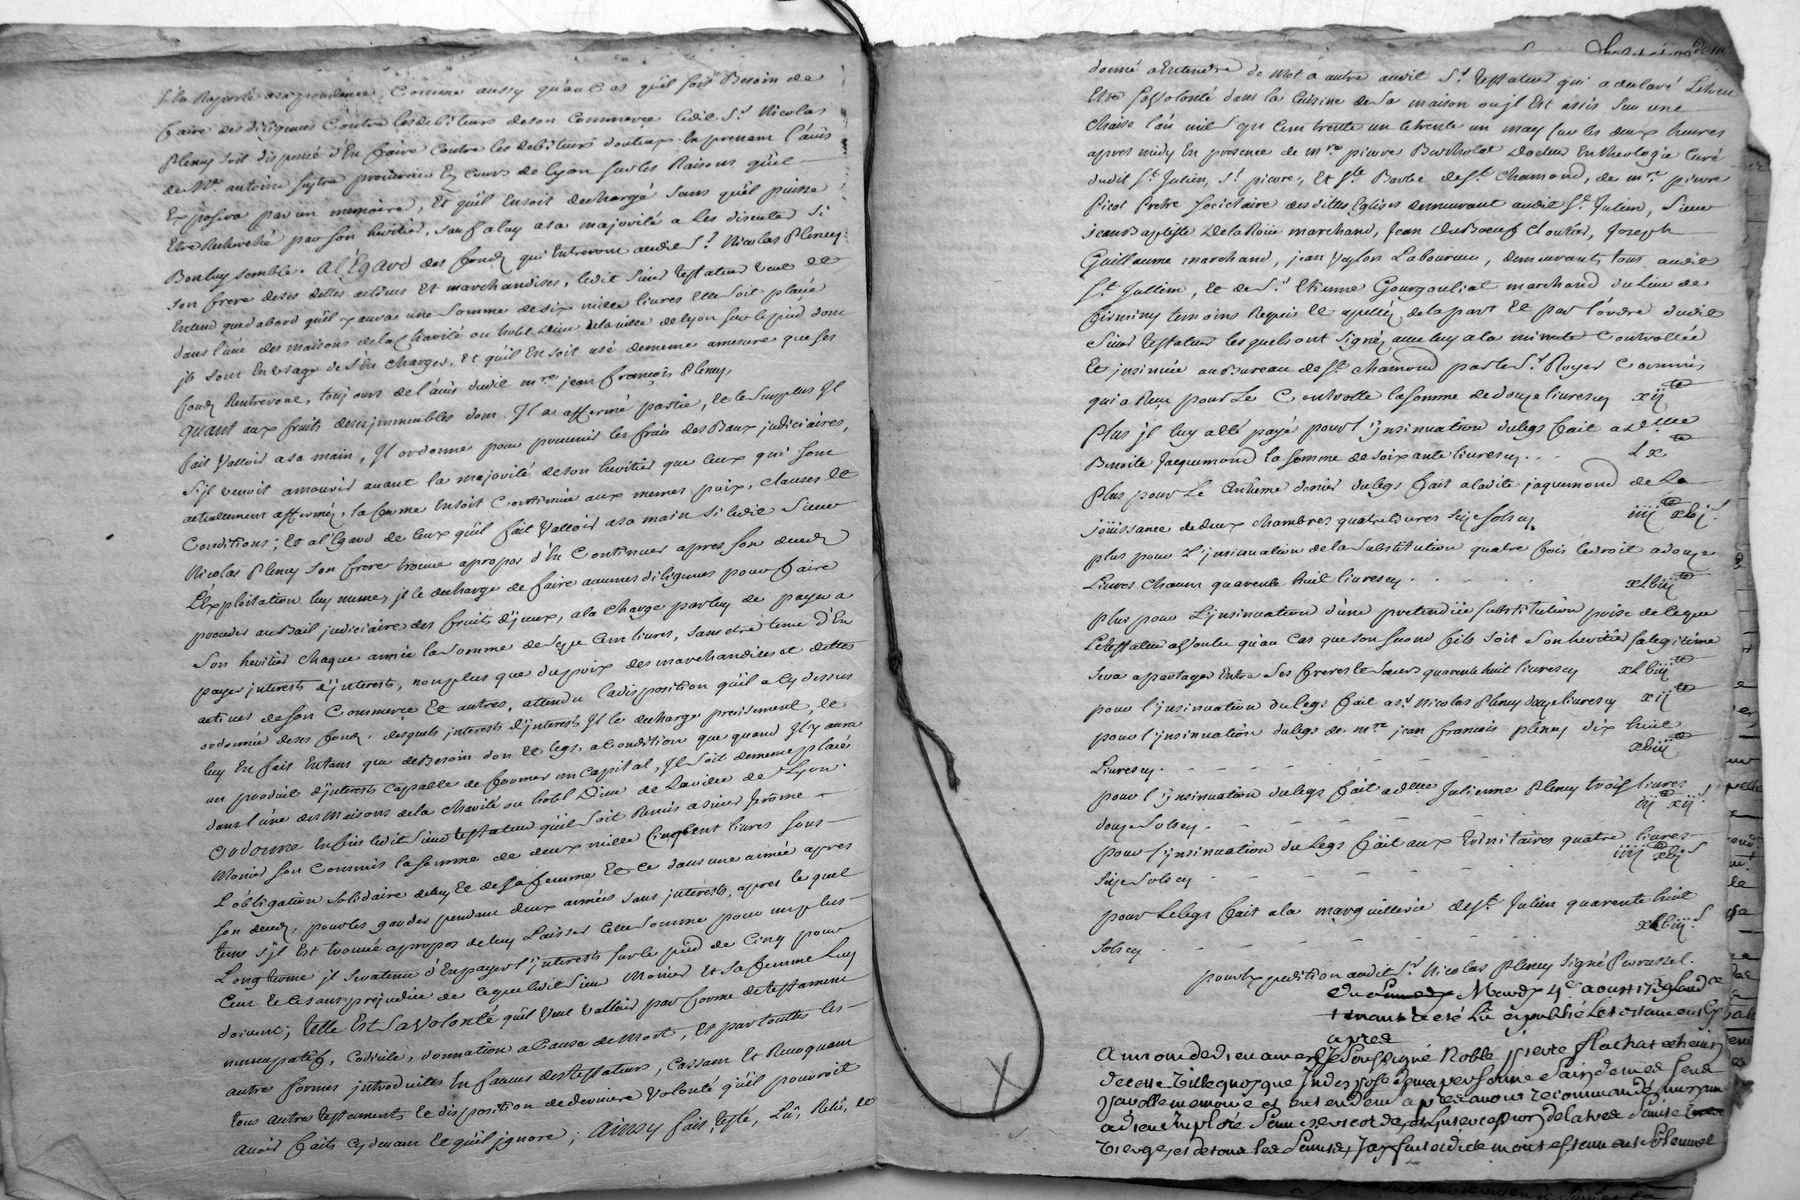 s'en Raporte asa prudence, Comme aussy qu'au Cas qu'il soit Besoin de
faire des diligences Contre les debiteurs de son Commerce ledit Sr. Nicolas
Pleney soit dispensé d'En faire contre les debiteurs douteux En prenant l'avis
de Me. antoine procureur Ez cours de lyon sur les Raisons qu'il
Exposera par un memoire, Et qu'il En soit dechargé sans qu'il puisse
Etre Recherché par son heritier, sauf a luy asa majorité a les discuter si
Bon luy semble. A l'Egard des fondz qui Entreront audit Sr. Nicolas Pleney
son frere de ses dettes actives Et marchandises, ledit Sieur testateur veut et
Entend que d'abord qu'il y aura une Somme de six mille livres Elle soit placée
dans l'une des maisons de la charité ou hotel Dieu de la ville de lyon sur le pied dont
jls sont En usage de s'En charger, Et qu'il En soit usé de meme amesure que ses
fondz Rentreront, toujours de l'avis dudit mre jean françois Pleney,
Quant aux fruits de ses jmmeubles dont Il a affermé partie, Et le Surplus Il
fait Valloir asa main, Il ordonne pour prevenir les frais des Baux judiciaires,
s'il venoit amourir avant la majorité de son heritier que Ceux qui sont
actuellement affermés, la ferme En soit Continuée aux memes prix, clauses Et
Conditions; Et al'Egard de Ceux qu'il fait Valloir asa main si ledit Sieur
Nicolas Pleney son frere trouve apropos d'En Continuer apres son decedz
l'Exploitation luy meme, jl le decharge de faire aucunes diligences pour faire
proceder au Bail judiciaire des fruits d'jceux, ala charge par luy de payer a
son heritier chaque année la somme de seze Cent livres, sans etre tenu d'En
payer jnterests d'jnterests, non plus que du prix des marchandises et dettes
actives de son Commerce Et autres, attendu la disposition qu'il a Cy dessus
ordonnée de ses fondz. desquels jnterests d'jnterests Il le decharge precisement, Et
luy En fait Entant que de Besoin don Et legs, a Condition que quand Il y aura
un produit d'jnterests capable de former un Capital, Il soit de meme placé
dans l'une des Maisons de la Charité ou hotel Dieu de La ville de Lyon.
Ordonne En fin ledit Sieur testateur qu'il soit Remis a sieur Jerôme
Monier son Commis la somme de deux mille Cinq Cent livres sous
L'obligation solidaire de luy Et de sa femme Et Ce dans une année apres
son decedz, pour les garder pendant deux années sans jnterests, apres lequel
tems s'jl Est trouvé apropos de luy Laisser Cette somme pour un plus
Long terme jl sera tenu d'En payer l'jnterests sur le pied de Cinq pour
Cent Et Ce sans prejudice de Ce que ledit Sieur Monier Et sa femme luy
doivent; telle Est sa Volonté qu'il veut Valloir par forme de testament
nuncupatif, Codicile, donnation a Cause de mort, Et par touttes les
autre formes introduites En faveur des testateurs, Cassant Et Revoquant
tous autres testaments Et disposition de derniere volonté qu'il pourroit
avoir faits cy devant Et qu'il jgnore; Ainsy fait, testé, Lû, Relû, Et
donné a Entendre de Mot à autre audit Sr. testateur qui a declaré Le tout
Etre sa Volonté dans la Cuisine de sa maison ou jl Est assis sur une
chaise l'an mil sept Cent trente un le trente un may sur les deux heures
apres midy En presence de mre pierre Bartholat docteur En theologie curé
dudit St Julien, St. pierre, Et Ste Barbe de St. Chamond, de mre pierre
Picot Pretre societaire desdittes Eglises demeurant audit St. Julien, Sieur
jean Baptiste De la Roüe marchand, Jean DuBoeuf Cloutier, Joseph
Guillaume marchand, jean Veylon Laboureur, demeurants tous audit
St. Jullien, Et de Sr. Etienne Gourgouliat marchand du Lieu de
firminy temoins Requis Et apellez de la part Et par l'ordre dudit
Sieur testateur lesquels ont signéz avec luy a la minute Controllée
Et jnsinuée au Bureau de St. chamond par le Sr. Royer Commis,
qui a Reçu pour Le Controlle la somme de douze livres cy xij lt
Plus jl luy a Eté payé pour l'jnsinuation du legs fait a delle
Benoite Jacquemond la somme de soixante livres cy . . . Lx lt
Plus pour Le Centieme denier du legs fait a ladite jaquemond de La
joüissance de deux chambres quatre livres seize sols cy iiij lt xvj s.
plus pour L'jnsinuation de la Substitution quatre fois le droit a douze
Livres chacun quarente huit livres cy . . . . xLviij lt
plus pour L'jnsinuation d'une pretendüe substitution prise de ce que
Le testateur a Voulu qu'au Cas que son second fils soit son heritier sa legitime
sera apartager Entre ses freres Et soeurs quarente huit livres cy xLviij lt
pour l'jnsinuation du legs fait a Sr. Nicolas Pleney douze livres cy xij lt
pour l'jnsinuation du legs de mre jean francois pleney dix huit
Livres cy. - - - - - xviij lt
pour l'jnsinuation du legs fait a delle Julienne Pleney trois livres
douze Sols cy. - - - - - iij lt xij s.
pour l'jnsinuation du Legs fait aux Trinitaires quatre livres
seize Sols cy - - - - - iiij lt xvj s
pour Le legs fait a la marguillerie de St. Julien quarente huit
sols cy - - - - - xLviij s.
pour Expedition audit Sr. Nicolas Pleney Signé
Mardy 4e aoust
a eté Lû et publié Le testament Cy
apres
Au nom de dieu amen Je Soussigné Noble pierre flachat
de cette Ville quoyque Indisposé de ma personne Sain de mes sens
memoire et entendement apres avoir recommandé mon ame
a dieu Imploré l'intercession de la tres Sainte
Vierge, et de tous les Saints, J'ay fait mon testament Solemnel